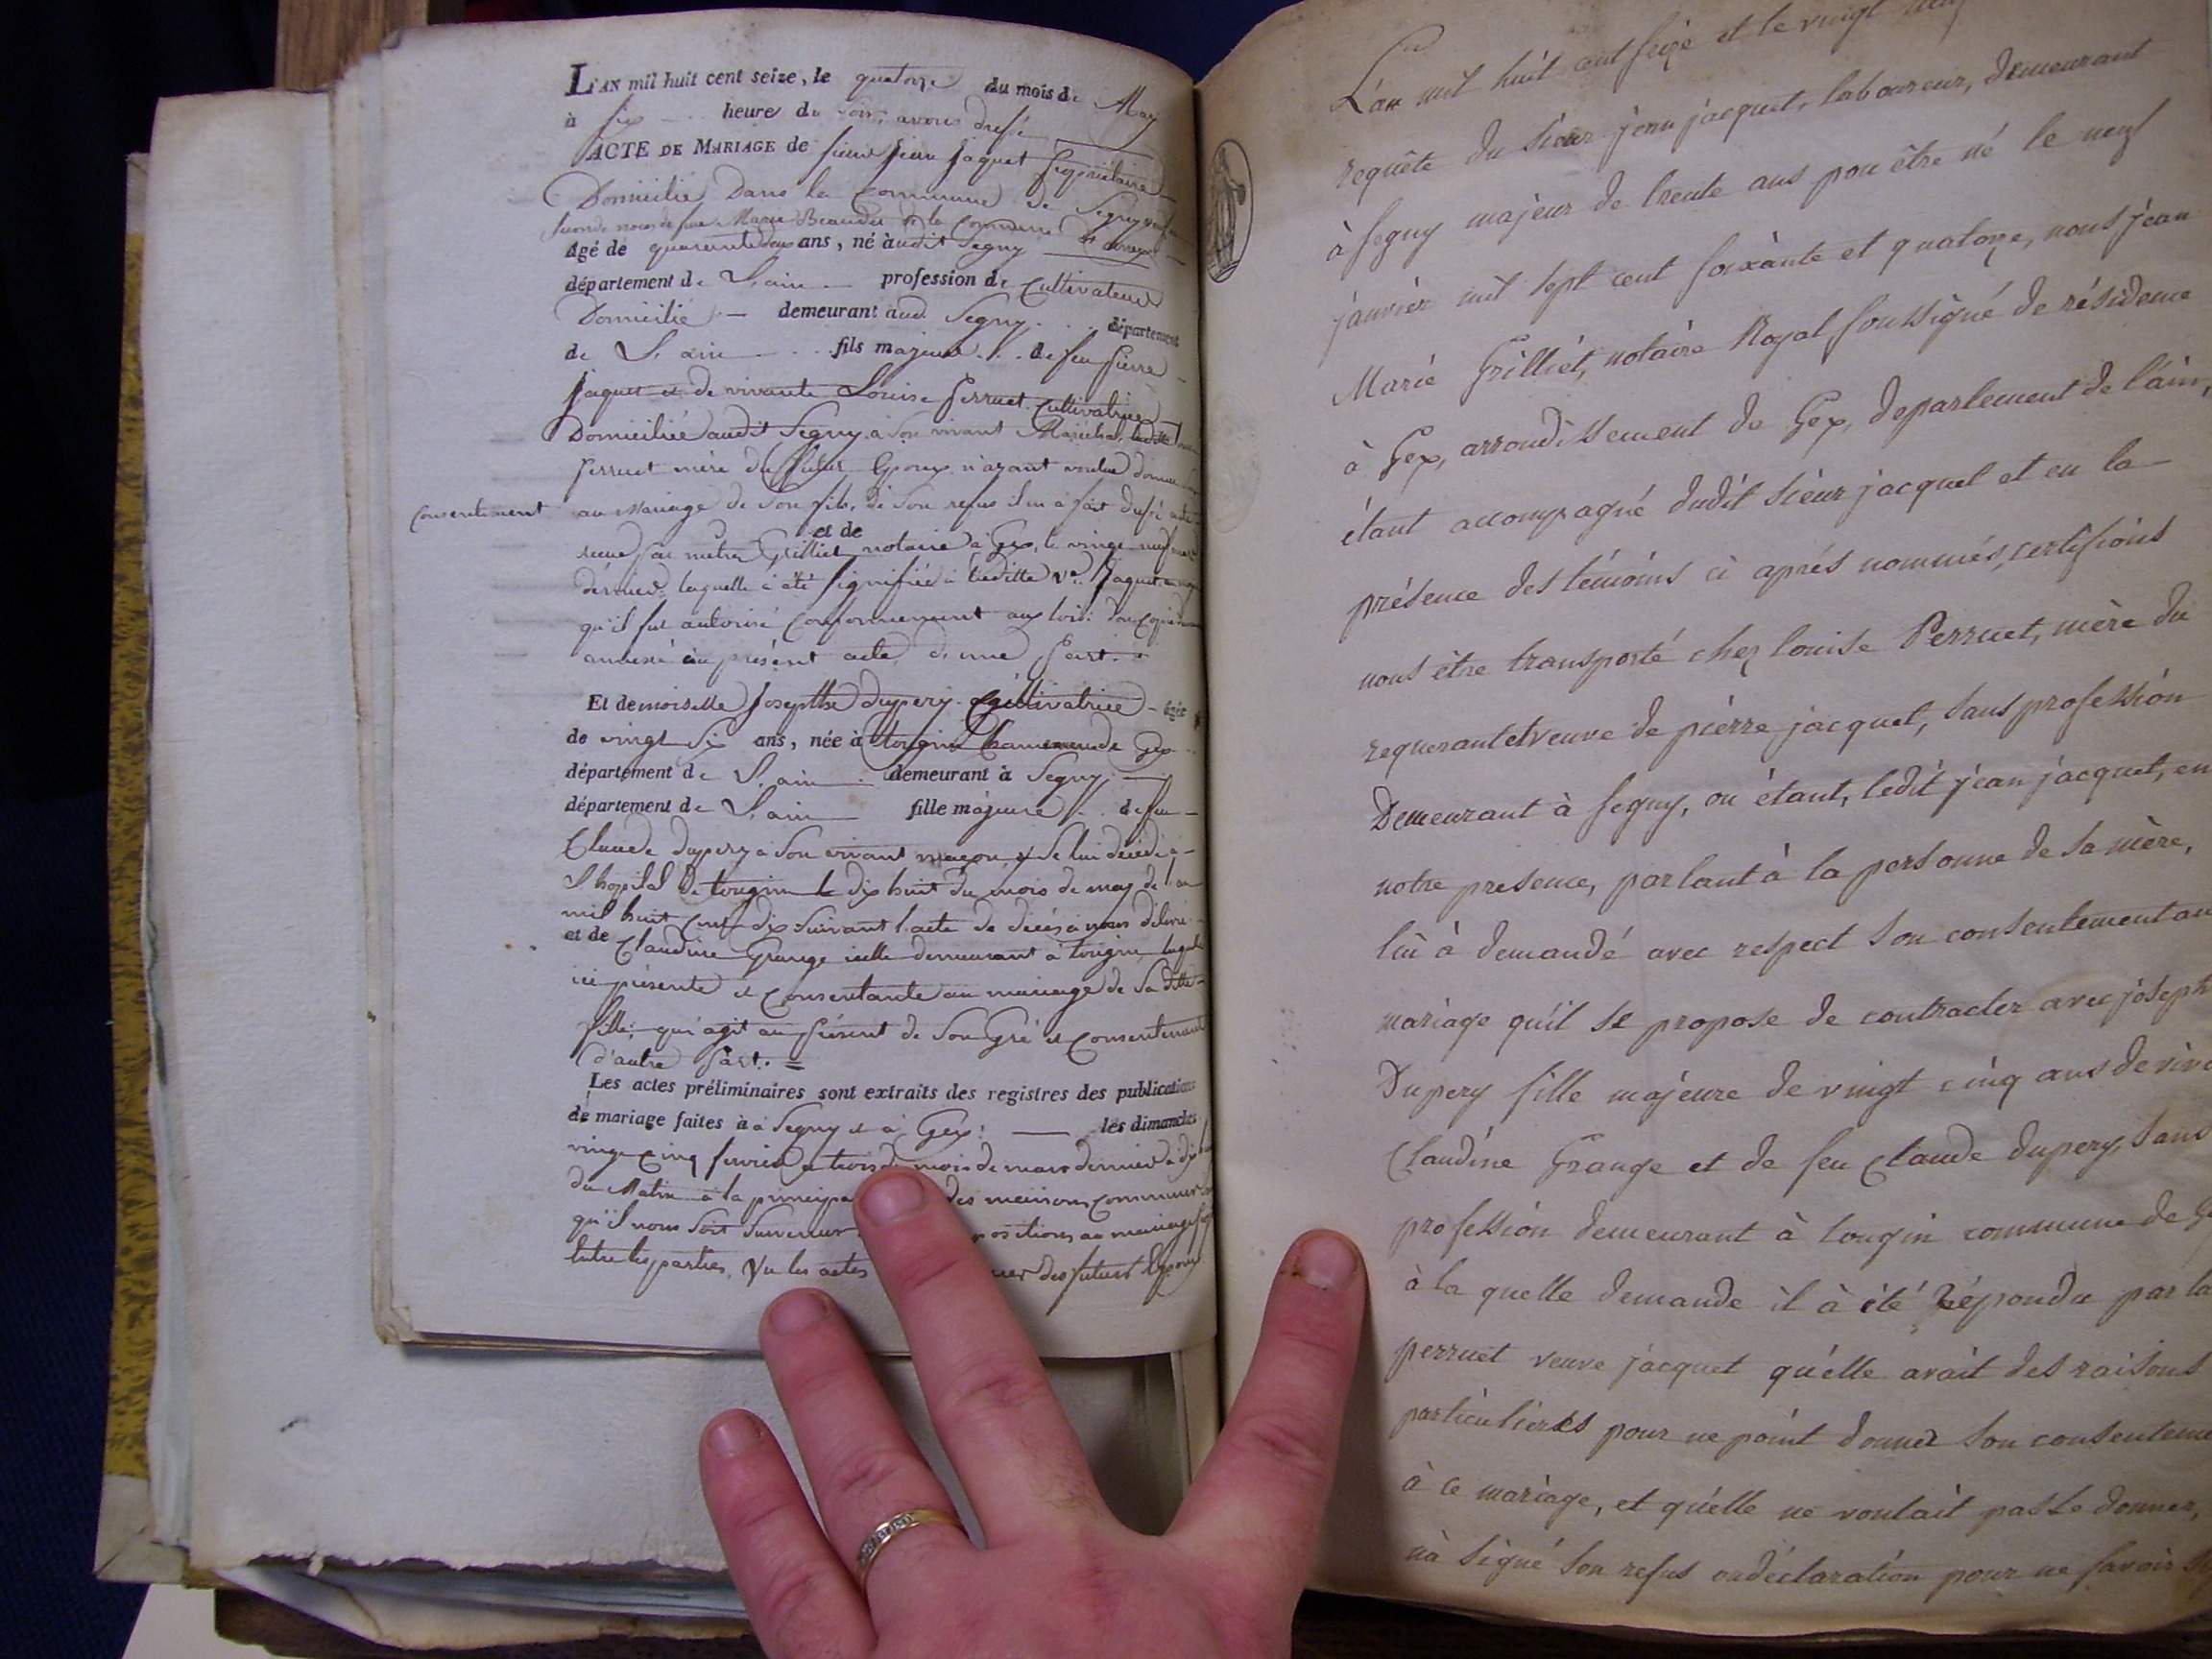 L'an mil huit cent seize, le quatorze du mois de May
à six heure du soir, avons dressé
ACTE DE MARIAGE de sieur Jean Jaquet propriétaire
Domicilié Dans la Commune de Segny
seconde noces de feue Marie Beaudet de la Commune
âgé de quarente deux ans, né àudit Segny
département de L'ain profession de Cultivateur
Domicilié demeurant aud. Segny département
de L'ain fils majeur de feu Pierre
Jaquet et de vivante Louise Perruet Cultivatrice
Domiciliée audit Segny, a son vivant Maréchal, ladite
Perruet mère du futur Epoux n'ayant voulue donner
consentement au Mariage de son fils, de son refus il en a fait dressé acte
et de
reçue par mètre Grilliet notaire à Gex, le vingt neuf
dérnier laquelle a été signifiée à laditte Ve. Jaquet
qu'il fut autorisé Conformement aux lois: dont copie
annexé au présent acte, d'une Part.
Et demoiselle Josepthe Dupery Cultivatrice âgée
de vingt six ans, née à tougin Commune de Gex
département de L'ain demeurant à Segny
département de L'ain fille majeure de feu
Claude Dupery a son vivant maçon, Celui décédé à
L'hopital De tougin le dix huit du mois de may de l'an
mil huit Cent dix suivant l'acte de décés a nous délivré
et de Claudine Grange icelle demeurant à tougin, laquelle
ici présente et Consentante au mariage de sa ditte
fille; qui agit au présent de son Gré et Consentement
d'autre part. =
Les actes préliminaires sont extraits des registres des publications
de mariage faites à à Segny et à Gex: les dimanches
vingt Cinq fevrier et trois du mois de mars dernier à dix
du Matin à la des maisons Commune
qu'il nous soit Survenue au mariage
entre les parties. Vu les actes des futurs Epoux
L'an mil huit cent seize et le vingt neuf
requête du sieur jean jacquet, laboureur, demeurant
à segny majeur de trente ans pour être né le neuf
janvier mil sept cent soixante et quatorze, nous jean
Marie Grilliet, notaire Royal soussigné de résidence
à Gex, arrondissement de Gex, departement de l'ain,
étant accompagné dudit sieur jacquet et en la
présence des témoins ci aprés nommés, certifions
nous être transporté chez louise Perruet, mère du
requerant et veuve de pierre jacquet, sans profession
Demeurant à segny, où étant, ledit jean jacquet, en
notre presence, parlant à la personne de sa mère,
lui à demandé avec respect son consentement au
mariage qu'il se propose de contracter avec joseph
Dupery fille majeure de vingt cinq ans de viv
Claudine Grange et de feu Claude Dupery, sans
profession demeurant à tougin commune de G
à la quelle demande il à été répondu par la
perruet veuve jacquet qu'elle avait des raisons
particulières pour ne point donner son consenteme
à ce mariage, et qu'elle ne voulait pas le donner,
n'a signé son refus ou déclaration pour ne savoir